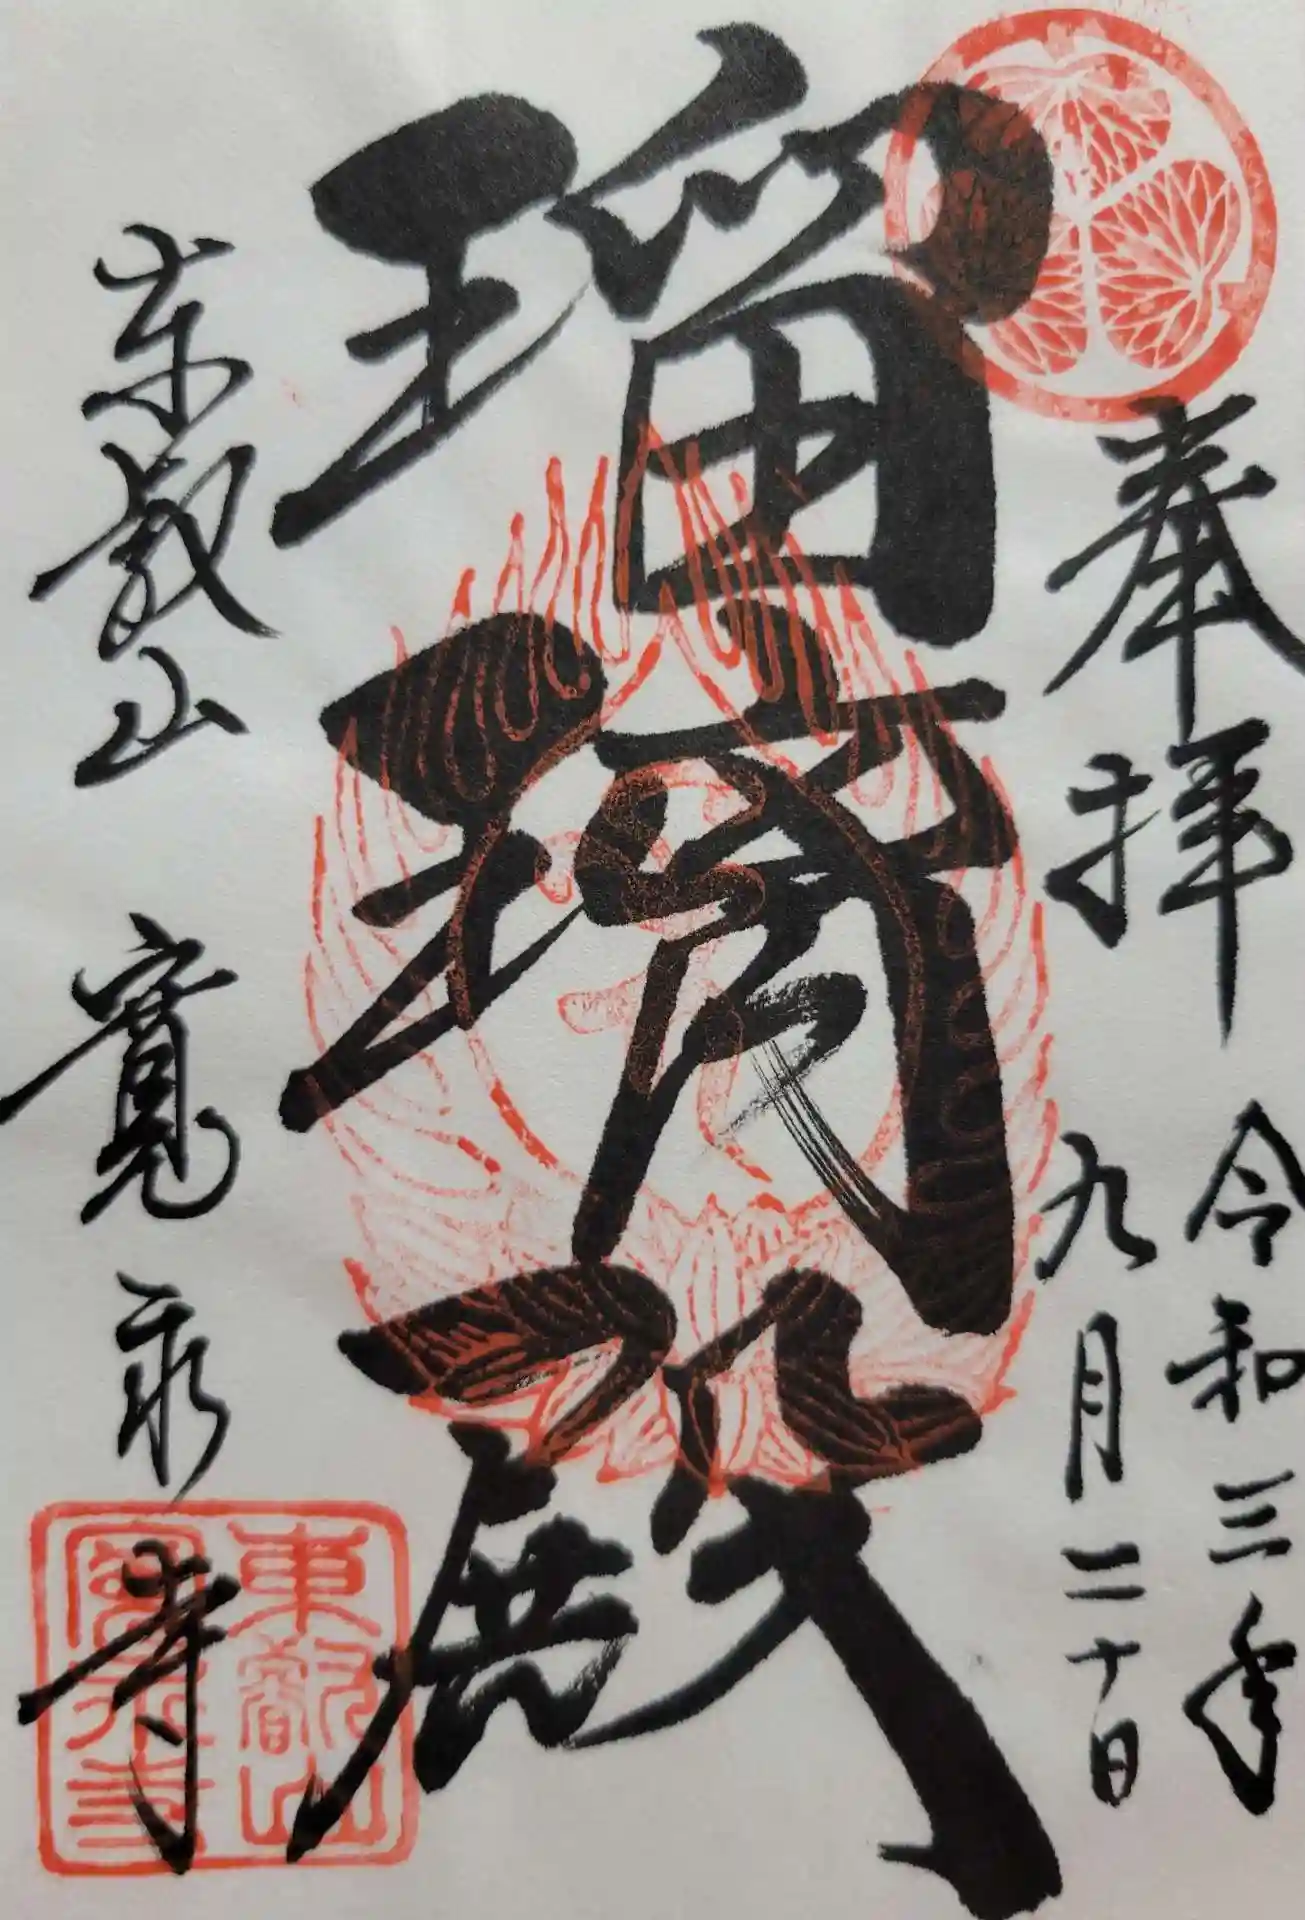 奉拝
令和三年
九月二十日
瑠璃殿
東叡山 寛永寺
東叡山
寛永寺